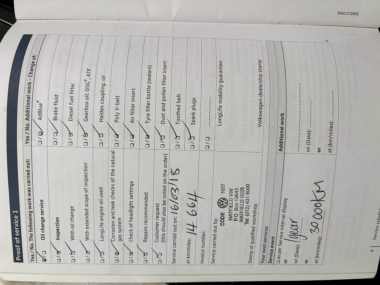 Proof of service 1
Yes / No. The following work was carried out:
Oil change service
Inspection
With oil change
With extended scope of inspection
LongLife engine oil used
Corrosion and leak checks of the natural
gas system
Check of headlight settings
Repairs recommended
Customer request
(this should also be noted on the order)
Service carried out on: 16/03/18
at km/miles: 14 664
Invoice number:
Service carried out by:
CODE
HATFIELD VW
Stamp of qualified workshop
Your next service:
Service event
(Date): 1 year
at (km/miles): 30 000 KM
Yes / No. Additional work - Change of:
AdBlue®
Brake fluid
Diesel fuel filter
Gearbox oil: DSG®, ATF
Haldex coupling: oil
Poly V-belt
Air filter insert
Tyre filler bottle (sealant)
Dust and pollen filter insert
Toothed belt
Spark plugs
LongLife mobility guarantee:
Volkswagen dealership stamp
Additional work
on (Date):
or
at (km/miles):